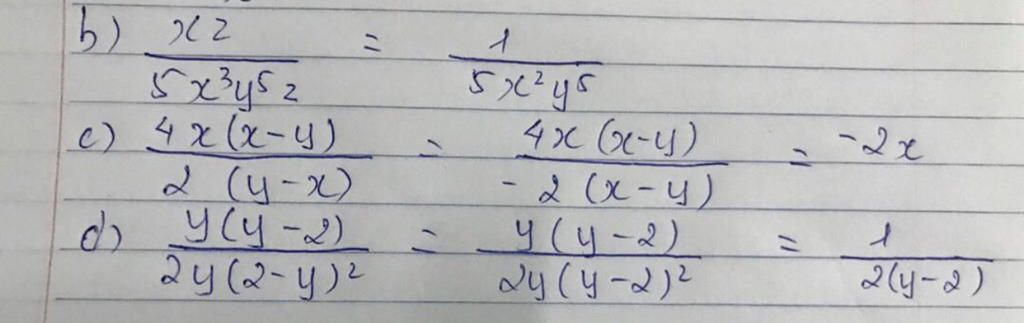 b) xz/5x³y⁵z = 1/5x²y⁵
c) 4x(x-y)/2(y-x) = 4x(x-y)/-2(x-y) = -2x
d) y(y-2)/2y(2-y)² = y(y-2)/2y(y-2)² = 1/2(y-2)